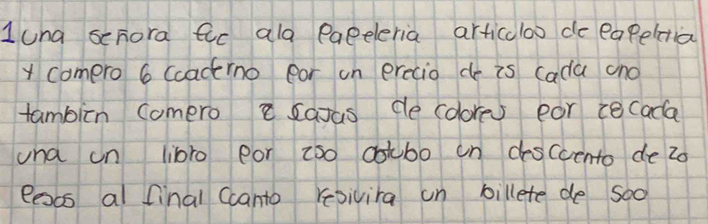 1 una señora fue ala Papeleria articulos de Papeleria
y compro 6 cuaderno por un precio de 25 cada uno
tambien compro 2 cajas de colores por 28 cada
una un libro por 250 obtubo un descuento de 20
pesos al final cuanto resivira un billete de 500